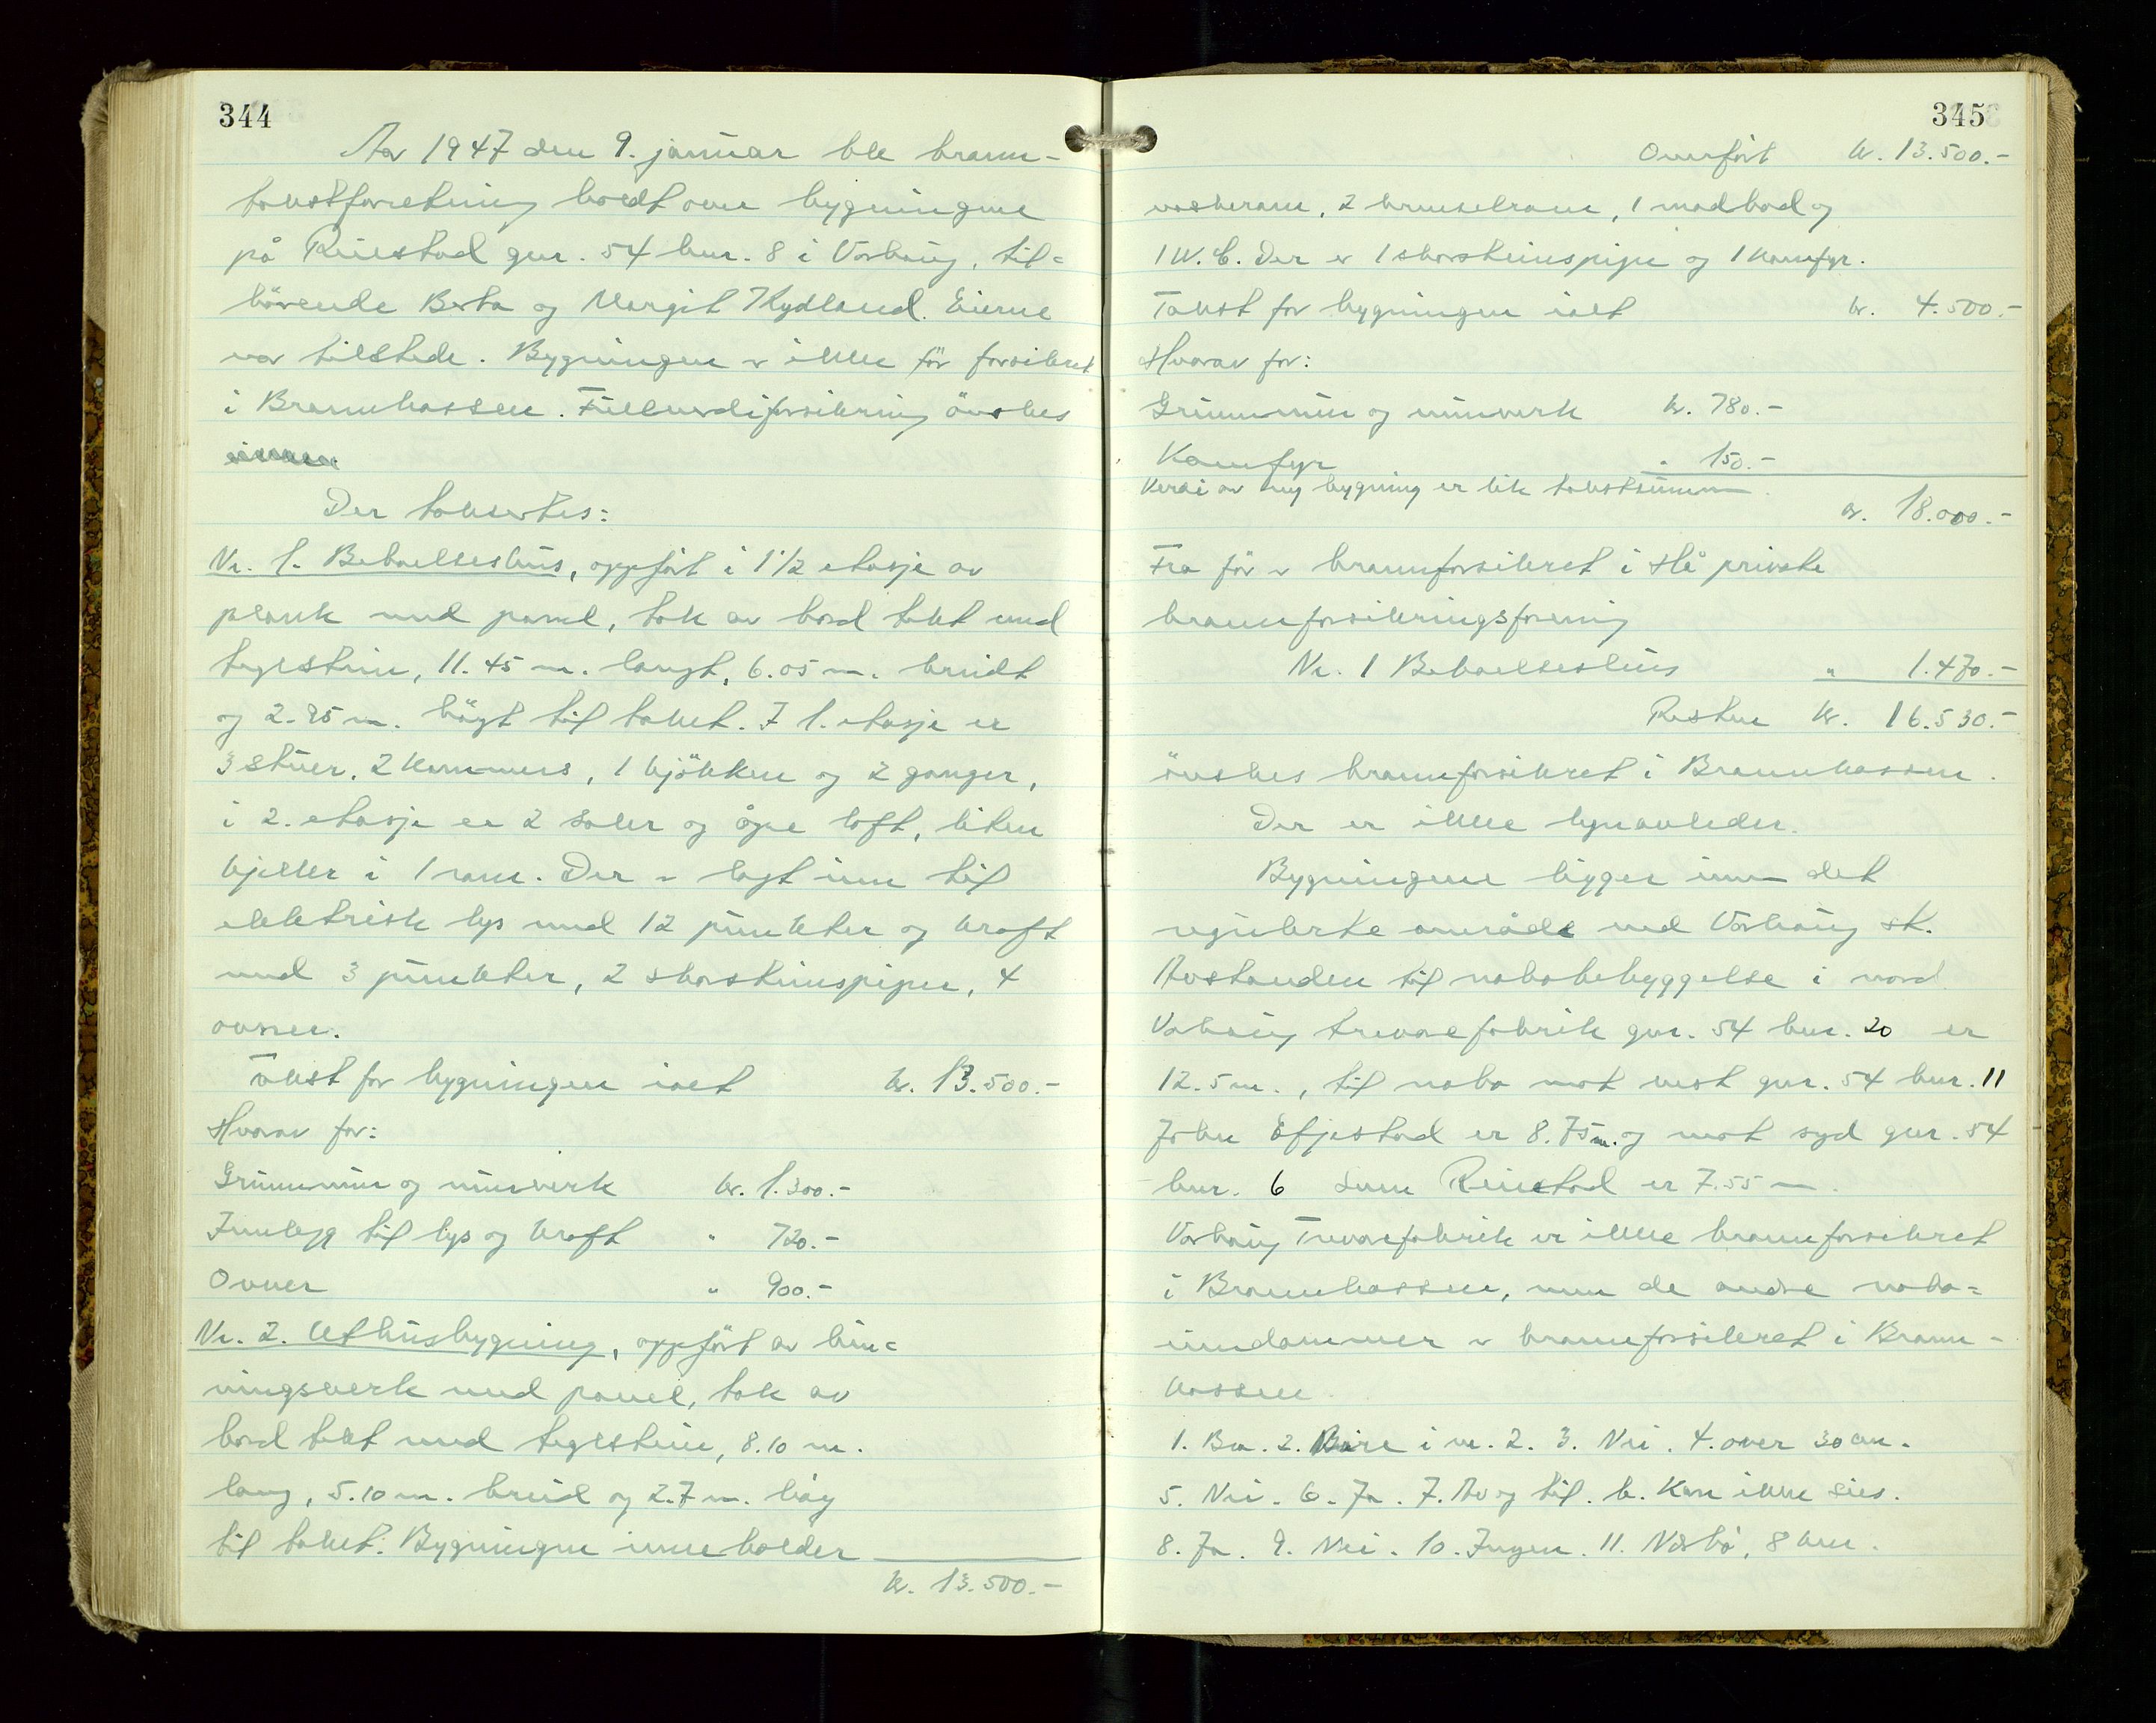 344
Aar 1947 den 9. januar ble brann-
takstforretning holdt over bygningene
på Reiestad gnr. 54 bnr. 8 i Varhaug, til=
hörende Berta og Margit Rydland. Eierne
var tilstede. Bygningen er ikke för forsikret
i Brannkassen. Fullverdiforsikring önskes
Der takseres:
Nr. 1. Beboelseshus, oppfört i 1 1/2 etasje av
plank med panel, tak av bord tekt med
teglstein, 11.45 m. langt, 6.05 m. breidt
og 2.95 m. högt til taket. I 1. etasje er
3 stuer, 2 kammers, 1 kjökken og 2 ganger,
i 2. etasje er 2 saler og åpe loft, liten
kjeller i 1 rom. Der er lagt inn til
elektrisk lys med 12 punkter og kraft
med 3 punkter, 2 skorsteinspiper, 4
ovner.
Takst for bygningen ialt kr. 13.500.-
Hvorav for:
Grunnmur og murverk kr. 1.300.-
Innlegg til lys og kraft " 720.-
Ovner " 900.-
Nr. 2. Uthusbygning, oppfört av bin=
ningsverk med panel, tak av
bord tekt med teglstein, 8.10 m.
lang, 5.10 m. breid og 2.7 m. høg
til taket. Bygningen inneholder
kr. 13.500.-
345
Overfört kr. 13.500.-
vaskerom, 2 brenselrom, 1 madbod og
1 W.C. Der er 1 skorsteinspipe og 1 komfyr.
Takst for bygningen ialt kr. 4.500.-
Hvorav for:
Grunnmur og murverk kr. 780.-
Komfyr " 150.-
Verdi av ny bygning er lik takstsummen.
kr. 18.000.-
Fra för er brannforsikret i Hå private
brannforsikringsforening
Nr. 1 Beboelseshus " 1.470.-
Resten kr. 16.530.-
önskes brannforsikret i Brannkassen.
Der er ikke lynavleder.
Bygningene ligger inn det
regulerte område ved Varhaug st.
Avstanden til nabobebyggelse i nord
Varhaug trevarefabrik gnr. 54 bnr. 20 er
12.5 m., til nabo mot vest gnr. 54 bnr. 11
John Efjestad er 8.75 m. og mot syd gnr. 54
bnr. 6 Reiestad er 7.55 m.
Varhaug Trevarefabrik er ikke brannforsikret
i Brannkassen, men de andre nabo=
eiendommer er brannforsikret i Brann-
kassen.
1. Bra. 2. Bare i nr. 2. 3. Nei. 4. over 30 cm.
5. Nei. 6. Ja. 7. Av og til. b. Kan ikke sies.
8. Ja. 9. Nei. 10. Ingen. 11. Nærbø, 8 km.